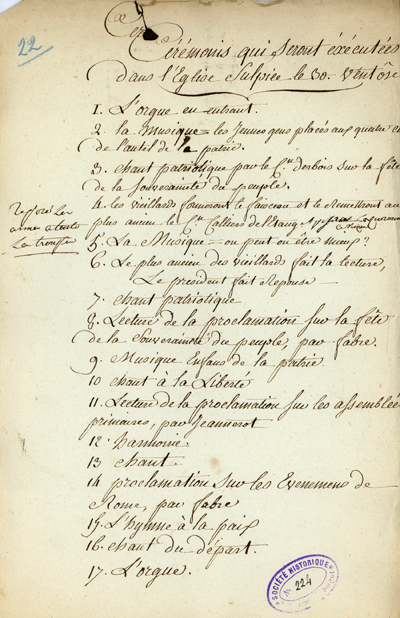 22
Cérémonis qui seront éxécutées
dans l'Eglise Sulpice le 30. Ventôse
1. L'orgue en entrant.
2. la Musique = les Jeunes gens placés aux quatre
de l'autel de la patrie.
3. chant patriotique par le Cn. Desbois sur la fête
de la souveraineté du peuple.
4. les vieillards formeront le faisceau et le remettront au
plus ancien le Cn.
5. La Musique = ou peut on être mieux?
6. Le plus ancien des vieillards fait la lecture,
Le président fait Reponse
7. chant patriotique
8. Lecture de la proclamation sur la fête
de la souveraineté du peuple, par fabre.
9. Musique Enfans de la patrie.
10 chant à la Liberté
11. Lecture de la proclamation sur les assemblée
primaires, par Jeannerot
12. harmonie.
13 chant.
14 proclamation sur les Evenemens de
Rome, par fabre
15. L'hymne à la paix
16. chant du départ.
17. L'orgue.
SOCIÉTÉ HISTORIQUE
224